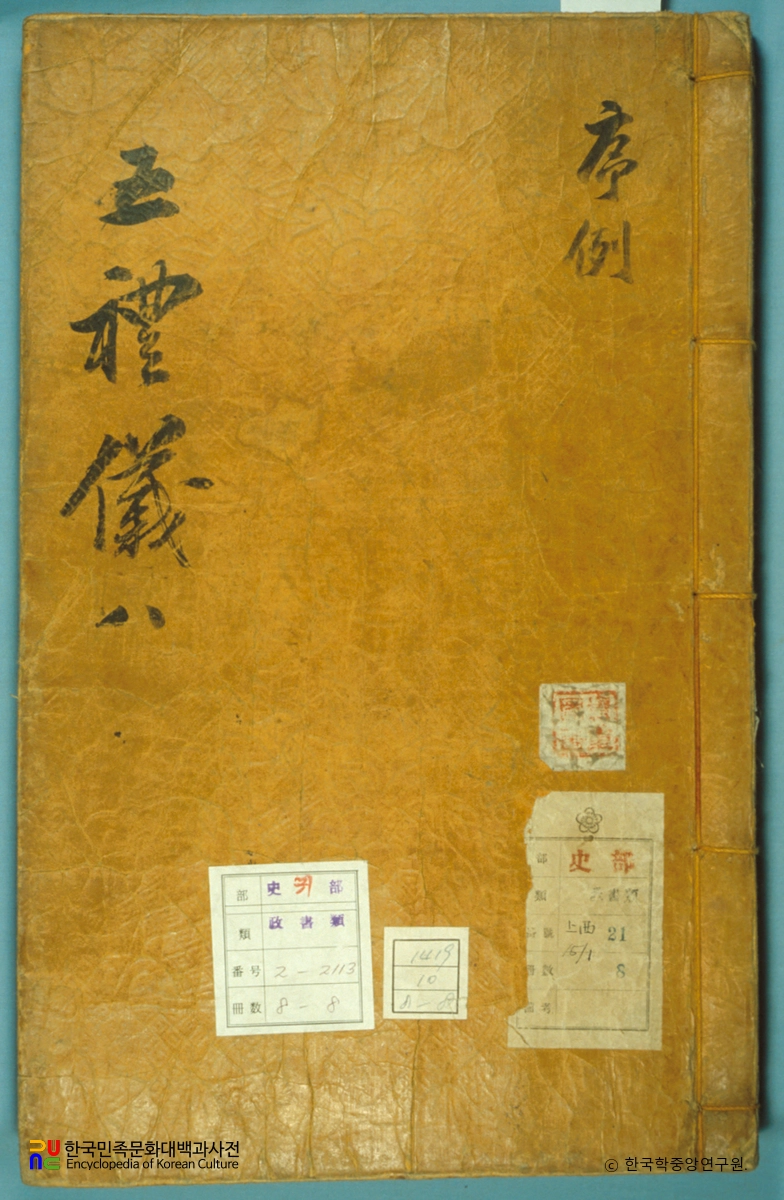 序例
五禮儀 八
部 史 部
類
上西 21
15/1
數 8
考
部 史 部
類 政書類
番号 2-2113
冊数 8-8
1419
10
8-8
한국민족문화대백과사전
Encyclopedia of Korean Culture
© 한국학중앙연구원